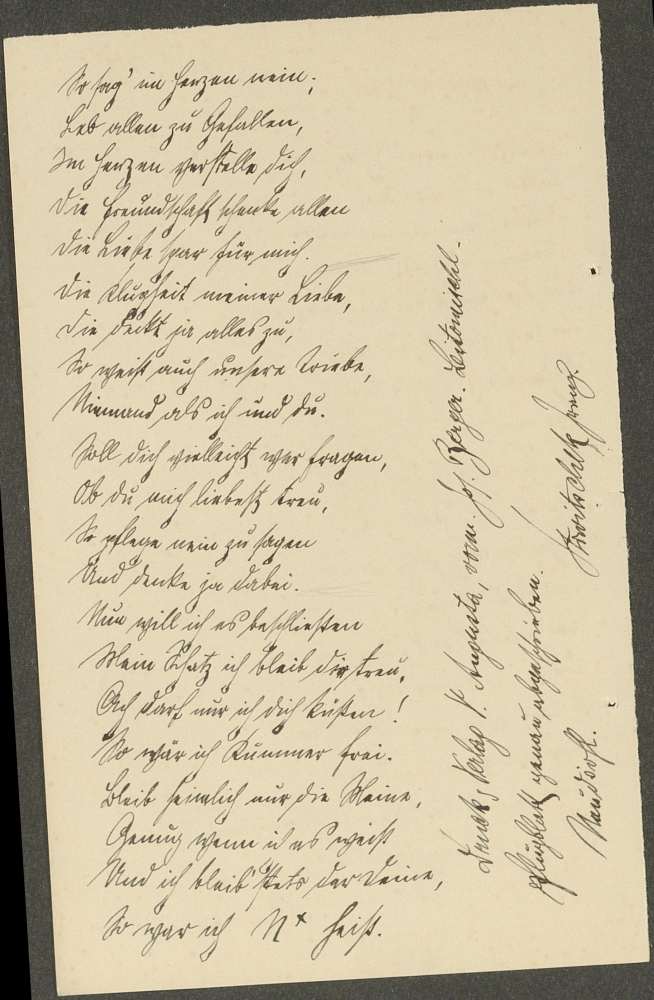 So sag' im Herzen nein;
Leb allen zu Gefallen,
Im Herzen verstelle dich,
Die Freundschaft schenke allen
Die Liebe spar für mich.
Die Klugheit meiner Liebe,
Die deckt ja alles zu,
So weiß auch unsere Triebe,
Niemand als ich und du.
Soll dich vielleicht wer fragen,
Ob du mich liebest treu,
So pflege nein zu sagen
Und denke ja dabei.
Nun will ich es beschließen
Mein Schatz ich bleib dir treu,
Ach darf nur ich dich küßen!
So wär ich Kummer frei.
Bleib heimlich nur die Meine,
Genug wenn ich es weiß
Und ich bleib' stets der Deine,
So war ich N x heiß.
Druck, Verlag V. Augusta, vorm. Jos. Berger. Leitomischl.
Flugblatt genau abgeschrieben.
Franz.